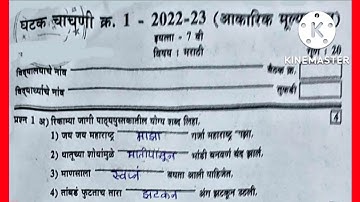 घटक चाचणी क्र. 1 - 2022-23 (आकारिक मूल्य
इयत्ता - 7 वी
विषय : मराठी
गुण : 20
विद्यालयाचे नांव
बैठक क्र.
विद्यार्थ्याचे नांव
तुकडी
प्रश्न 1 अ) रिकाम्या जागी पाठ्यपुस्तकातील योग्य शब्द लिहा.
4
1) जय जय महाराष्ट्र माझा गर्जा महाराष्ट्र माझा.
2) धातूच्या शोधांमुळे मातीपासून भांडी बनवणं बंद झालं.
3) माणसाला स्वप्नं बघता आली पाहिजेत.
4) तांबडं फुटताच तारा झटकन अंग झटकून उठली.
KINEMASTER